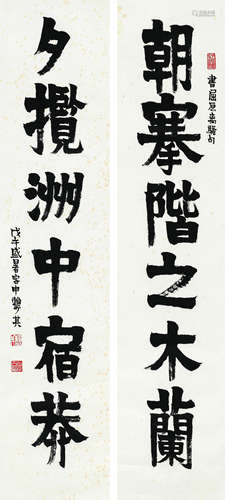 書屈原离騷句
朝搴階之木蘭
夕攬洲中宿莽
戊午盛暑客申